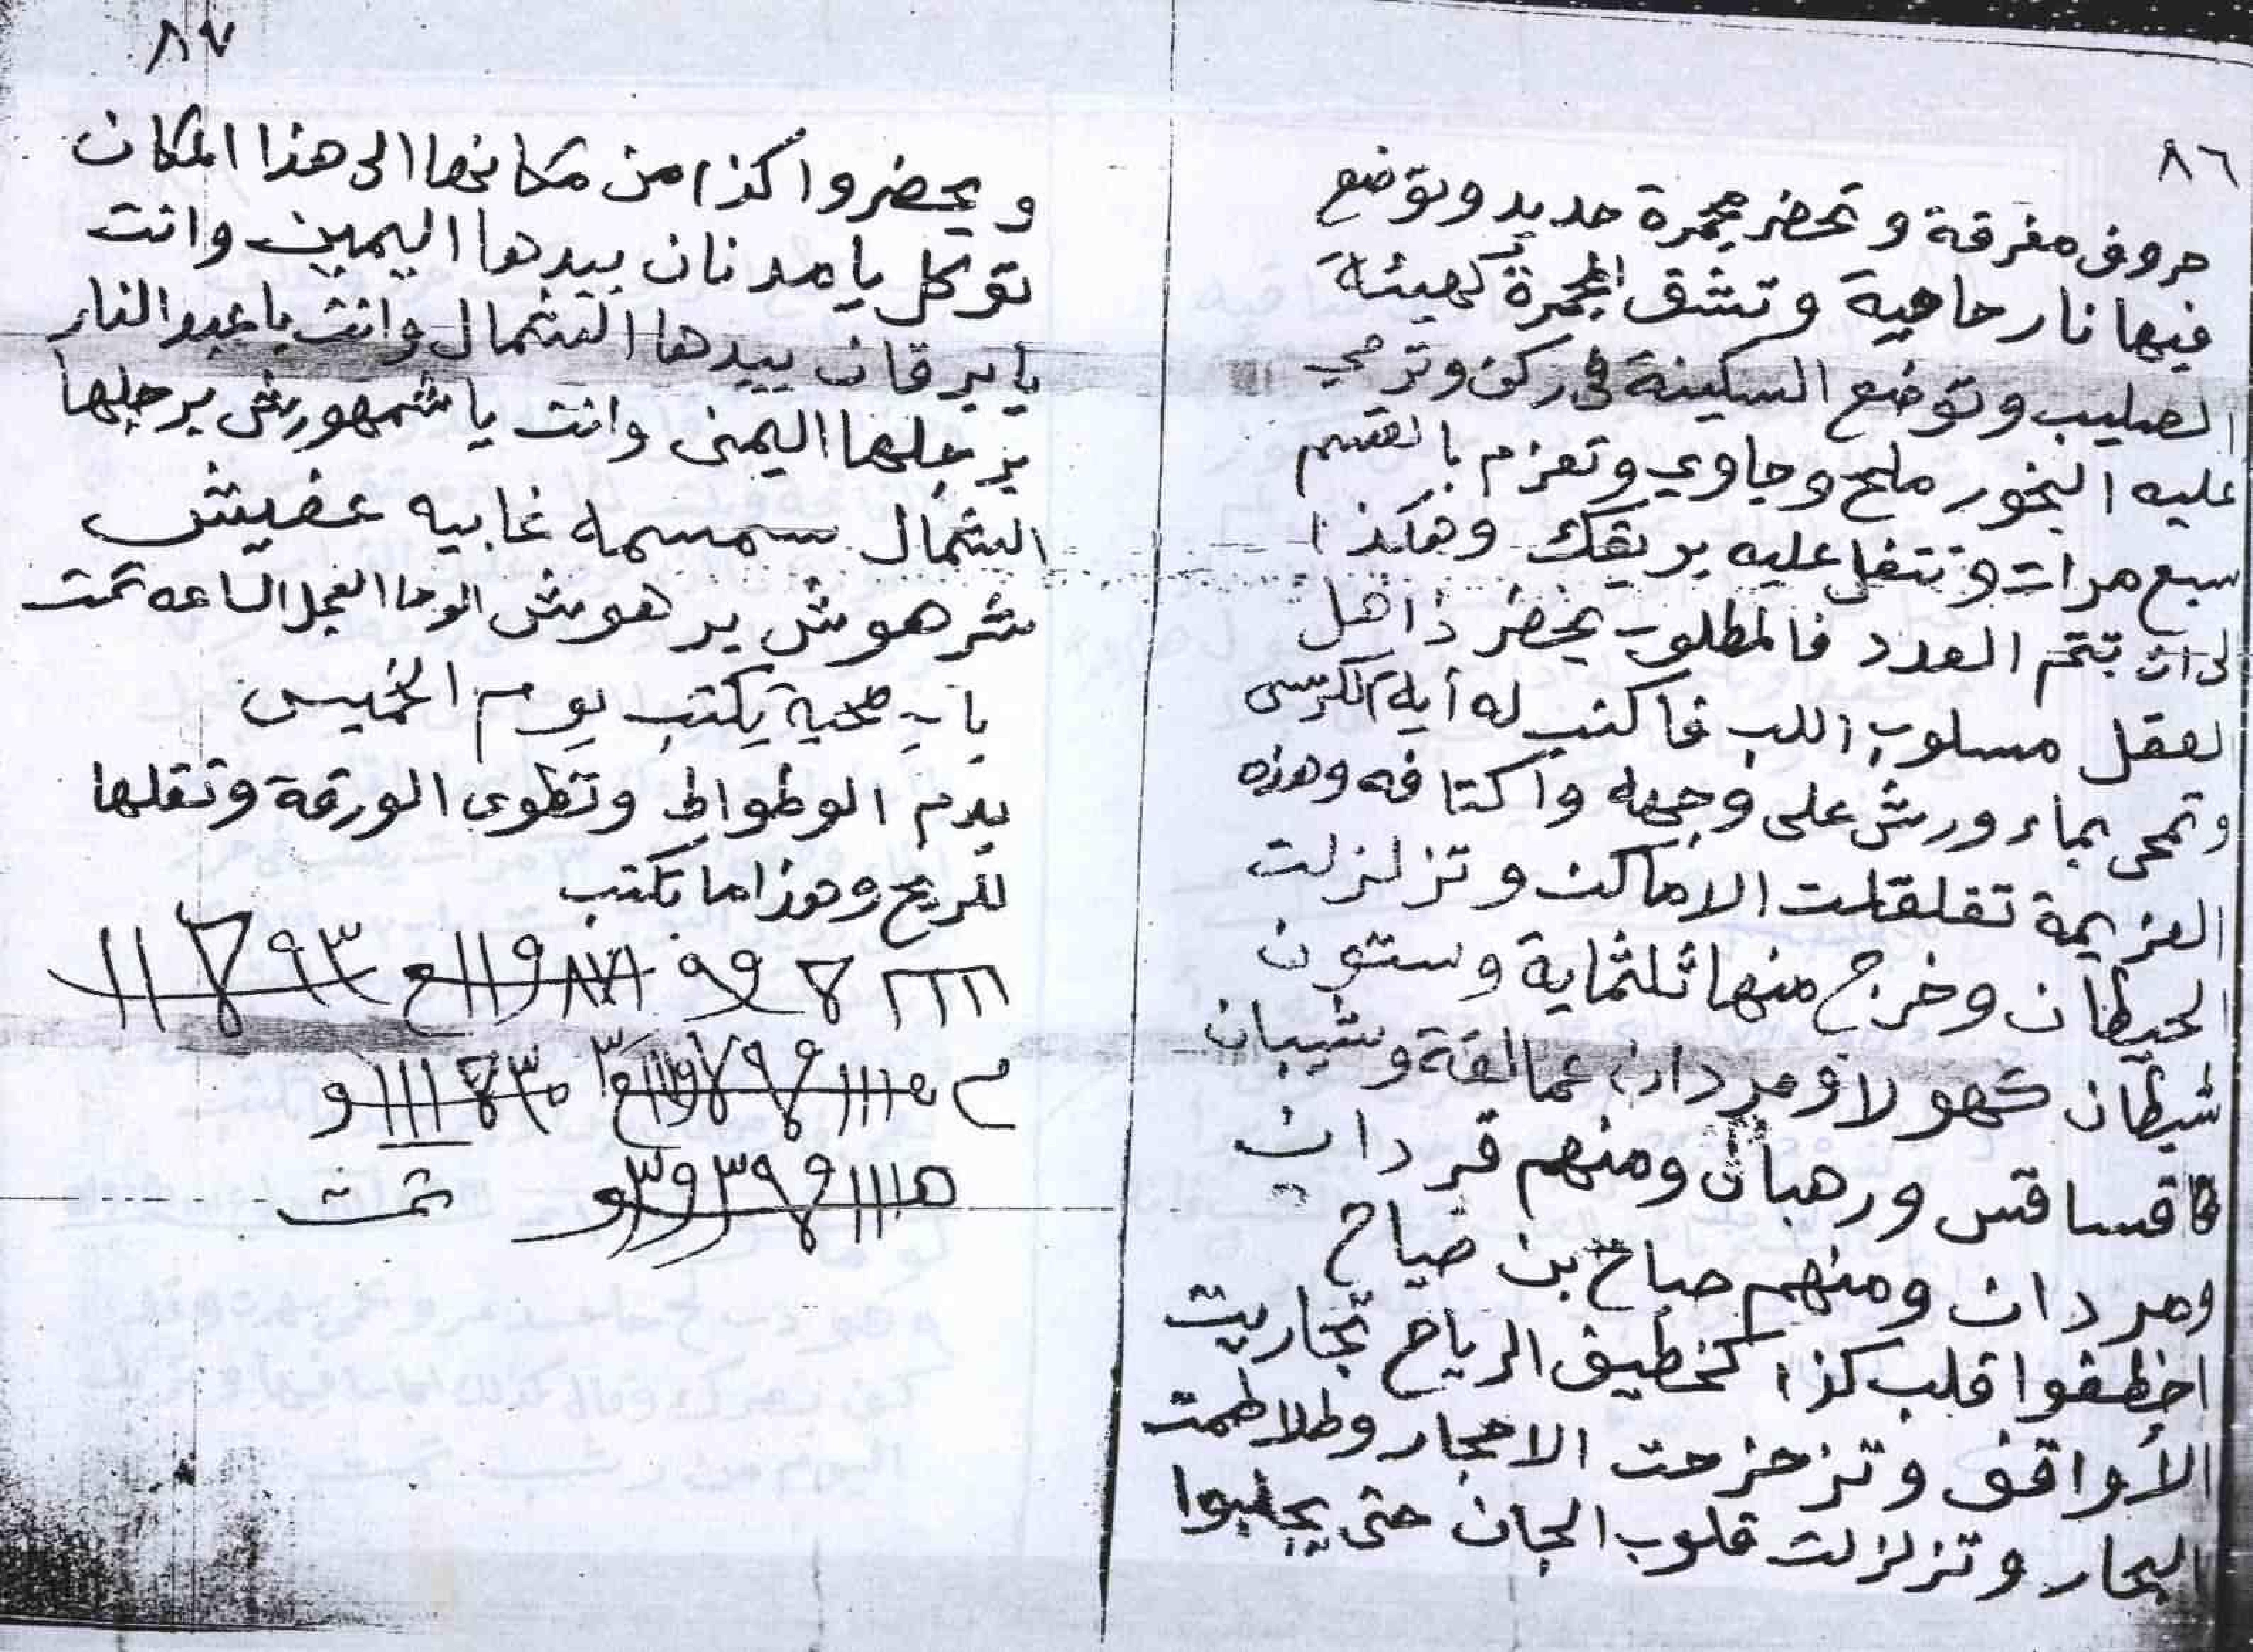 ٨٦
حروف مفرقة و تحضر مجمرة حديد و توضع
فيها نار حامية و تشق المجمرة كهيئة
الصليب و توضع السكينة في ركن و ترمي
عليه البخور ملح و جاوي و تعزم بالقسم
سبع مرات و تتفل عليه بريقك وهكذا
لى ان تتم العدد فالمطلوب يحضر ذاهل
لعقل مسلوب اللب فاكتب له أية الكرسى
وتمحى بماء ورش على وجهه واكتافه وهذه
العزيمة تقلقلت الاماكن و تزلزلت
الحيطان و خرج منها ثلثماية وستون
شيطان كهولا و مردان عمالقة و شيبان
قساقس و رهبان ومنهم قردان
ومردان ومنهم صباح بن صياح
اخطفوا قلب كذا كخطيف الرياح تجاريت
الأواقف و تزحزحت الاحجار وطلاطمت
البحار و تزلزلت قلوب الجان حتى يجلبوا
٨٧
و يحضروا كذا من مكانها الى هذا المكان
توكل يا مدنان بيدها اليمين وانت
يا برقان بيدها الشمال وانت يا عبد النار
برجلها اليمنى وانت يا شمهورش برجلها
الشمال سمسمه غابيه عفيش
شرهوش برهوش الوحا العجل الساعه تمت
باب محبة يكتب يوم الخميس
بدم الوطواط وتطوى الورقة وتعلقها
للريح وهذا ما تكتب
تمت